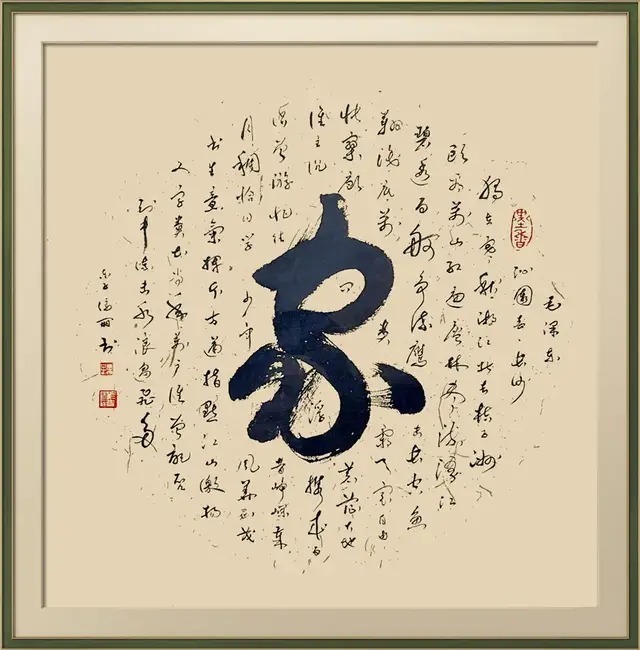 毛泽东
沁园春·长沙
独立寒秋湘江北去橘子洲
头看万山红遍层林尽染漫江
碧透百舸争流鹰击长空鱼
翔浅底万类霜天竞自由
怅寥廓问苍茫大地
谁主沉浮携来百
侣曾游忆往昔峥嵘岁
月稠恰同学少年风华正茂
书生意气挥斥方遒指点江山激扬
文字粪土当年万户侯曾记否
到中流击水浪遏飞舟
书